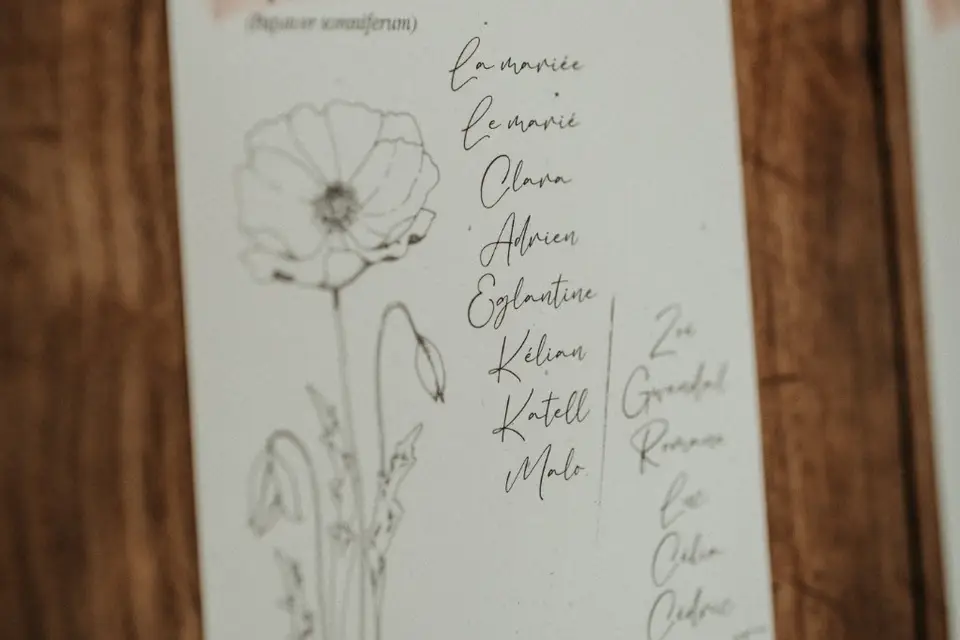 (papaver somniferum)
La mariée
Le marié
Clara
Adrien
Eglantine
Kélian
Katell
Malo
Zoé
Gwendal
Romane
Luc
Célia
Cédric